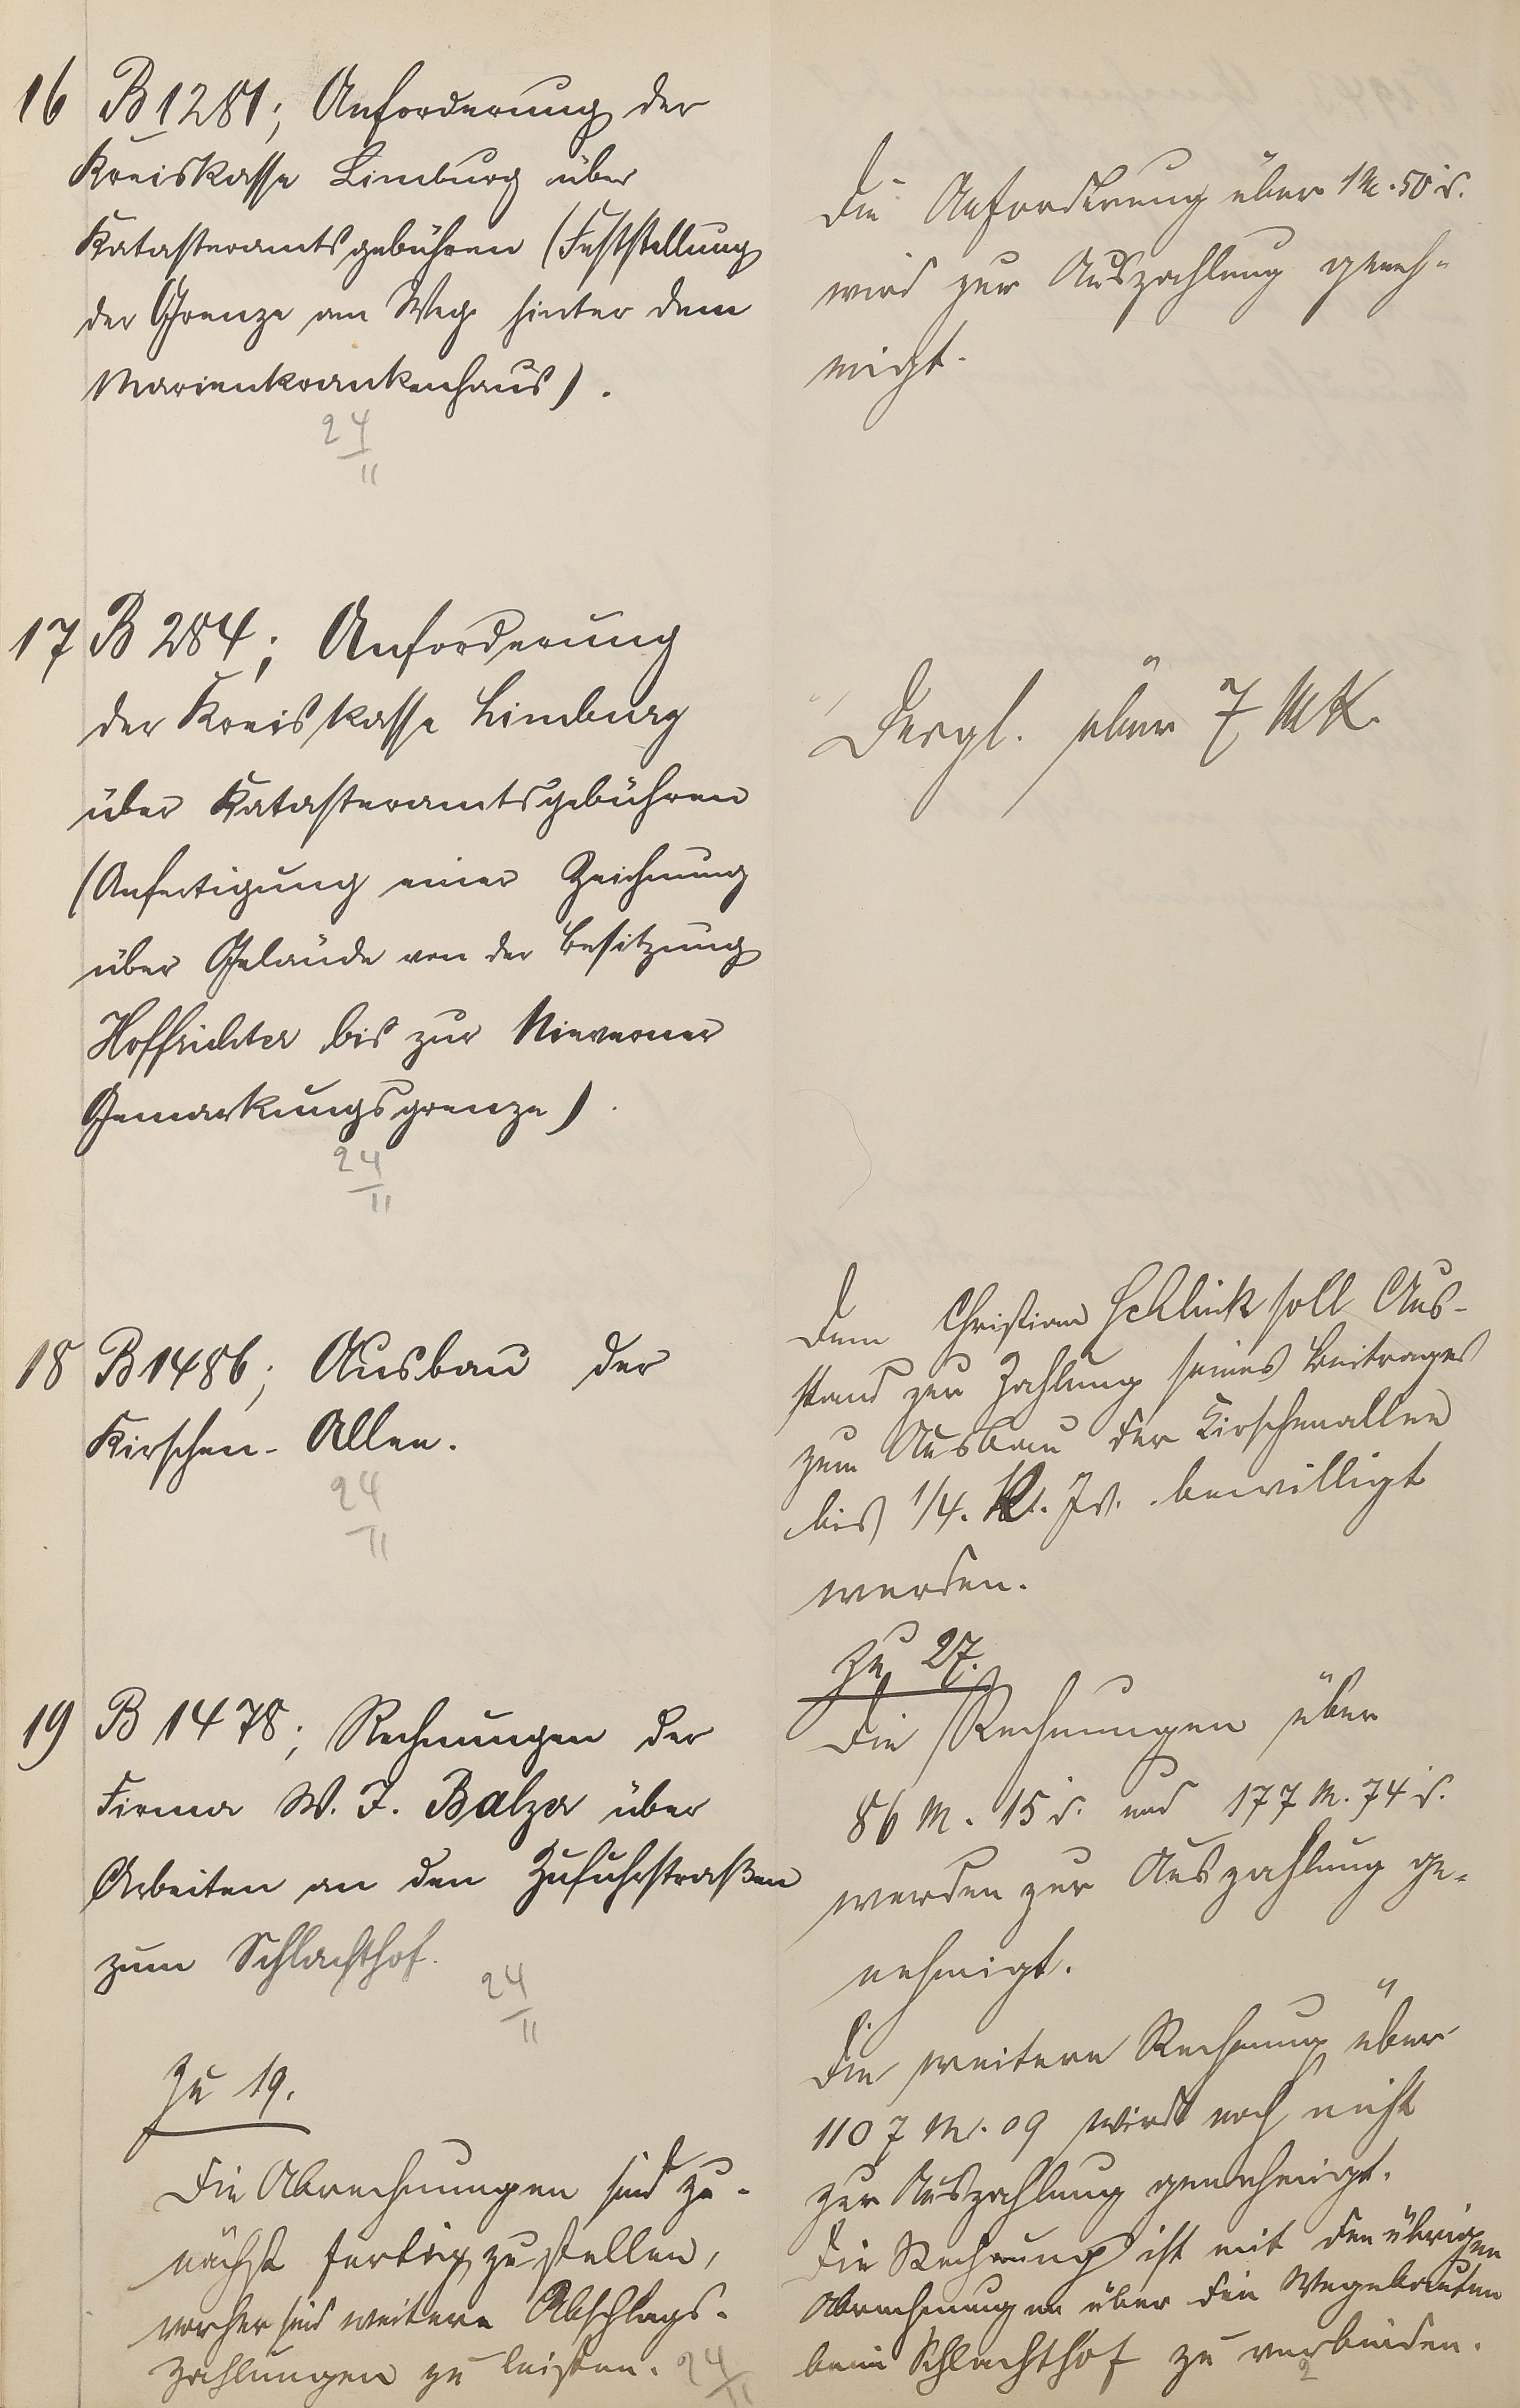 16 B 1281; Anforderung der
Kreiskasse Limburg über
Katasteramtsgebühren (Feststellung
der Grenze am Weg hinter dem
Marienkrankenhaus).
24
II
Die Anforderung über 1 M. 50 d.
wird zur Auszahlung geneh-
migt.
17 B 284; Anforderung
der Kreiskasse Limburg
über Katasteramtsgebühren
(Anfertigung einer Zeichnung
über Gelände von der Besitzung
Hoffrichter bis zur Nieverner
Gemarkungsgrenze).
24
II
Dergl. über 7 MK.
18 B 1486; Ausbau der
Kirschen-Allee.
24
II
Dem Christian Schlink soll Aus-
stand zur Zahlung seines Beitrages
zum Ausbau der Kirschenallee
bis 1/4. Js. bewilligt
werden.
19 B 1478; Rechnungen der
Firma W. J. Balzer über
Arbeiten an den Zufuhrstraßen
zum Schlachthof.
24
II
Zu 19.
Die Abrechnungen sind zu-
nächst fertig zu stellen,
vorher sind weitere Abschlags-
zahlungen zu leisten.
24
II
Zu 27.
Die Rechnungen über
86 M. 15 d. und 177 M. 74 d.
werden zur Auszahlung ge-
nehmigt.
Die weitere Rechnung über
1107 M. 09 wird noch nicht
zur Auszahlung genehmigt.
Die Rechnung ist mit den übrigen
Abrechnungen über die Wegebauten
beim Schlachthof zu verbinden.
2